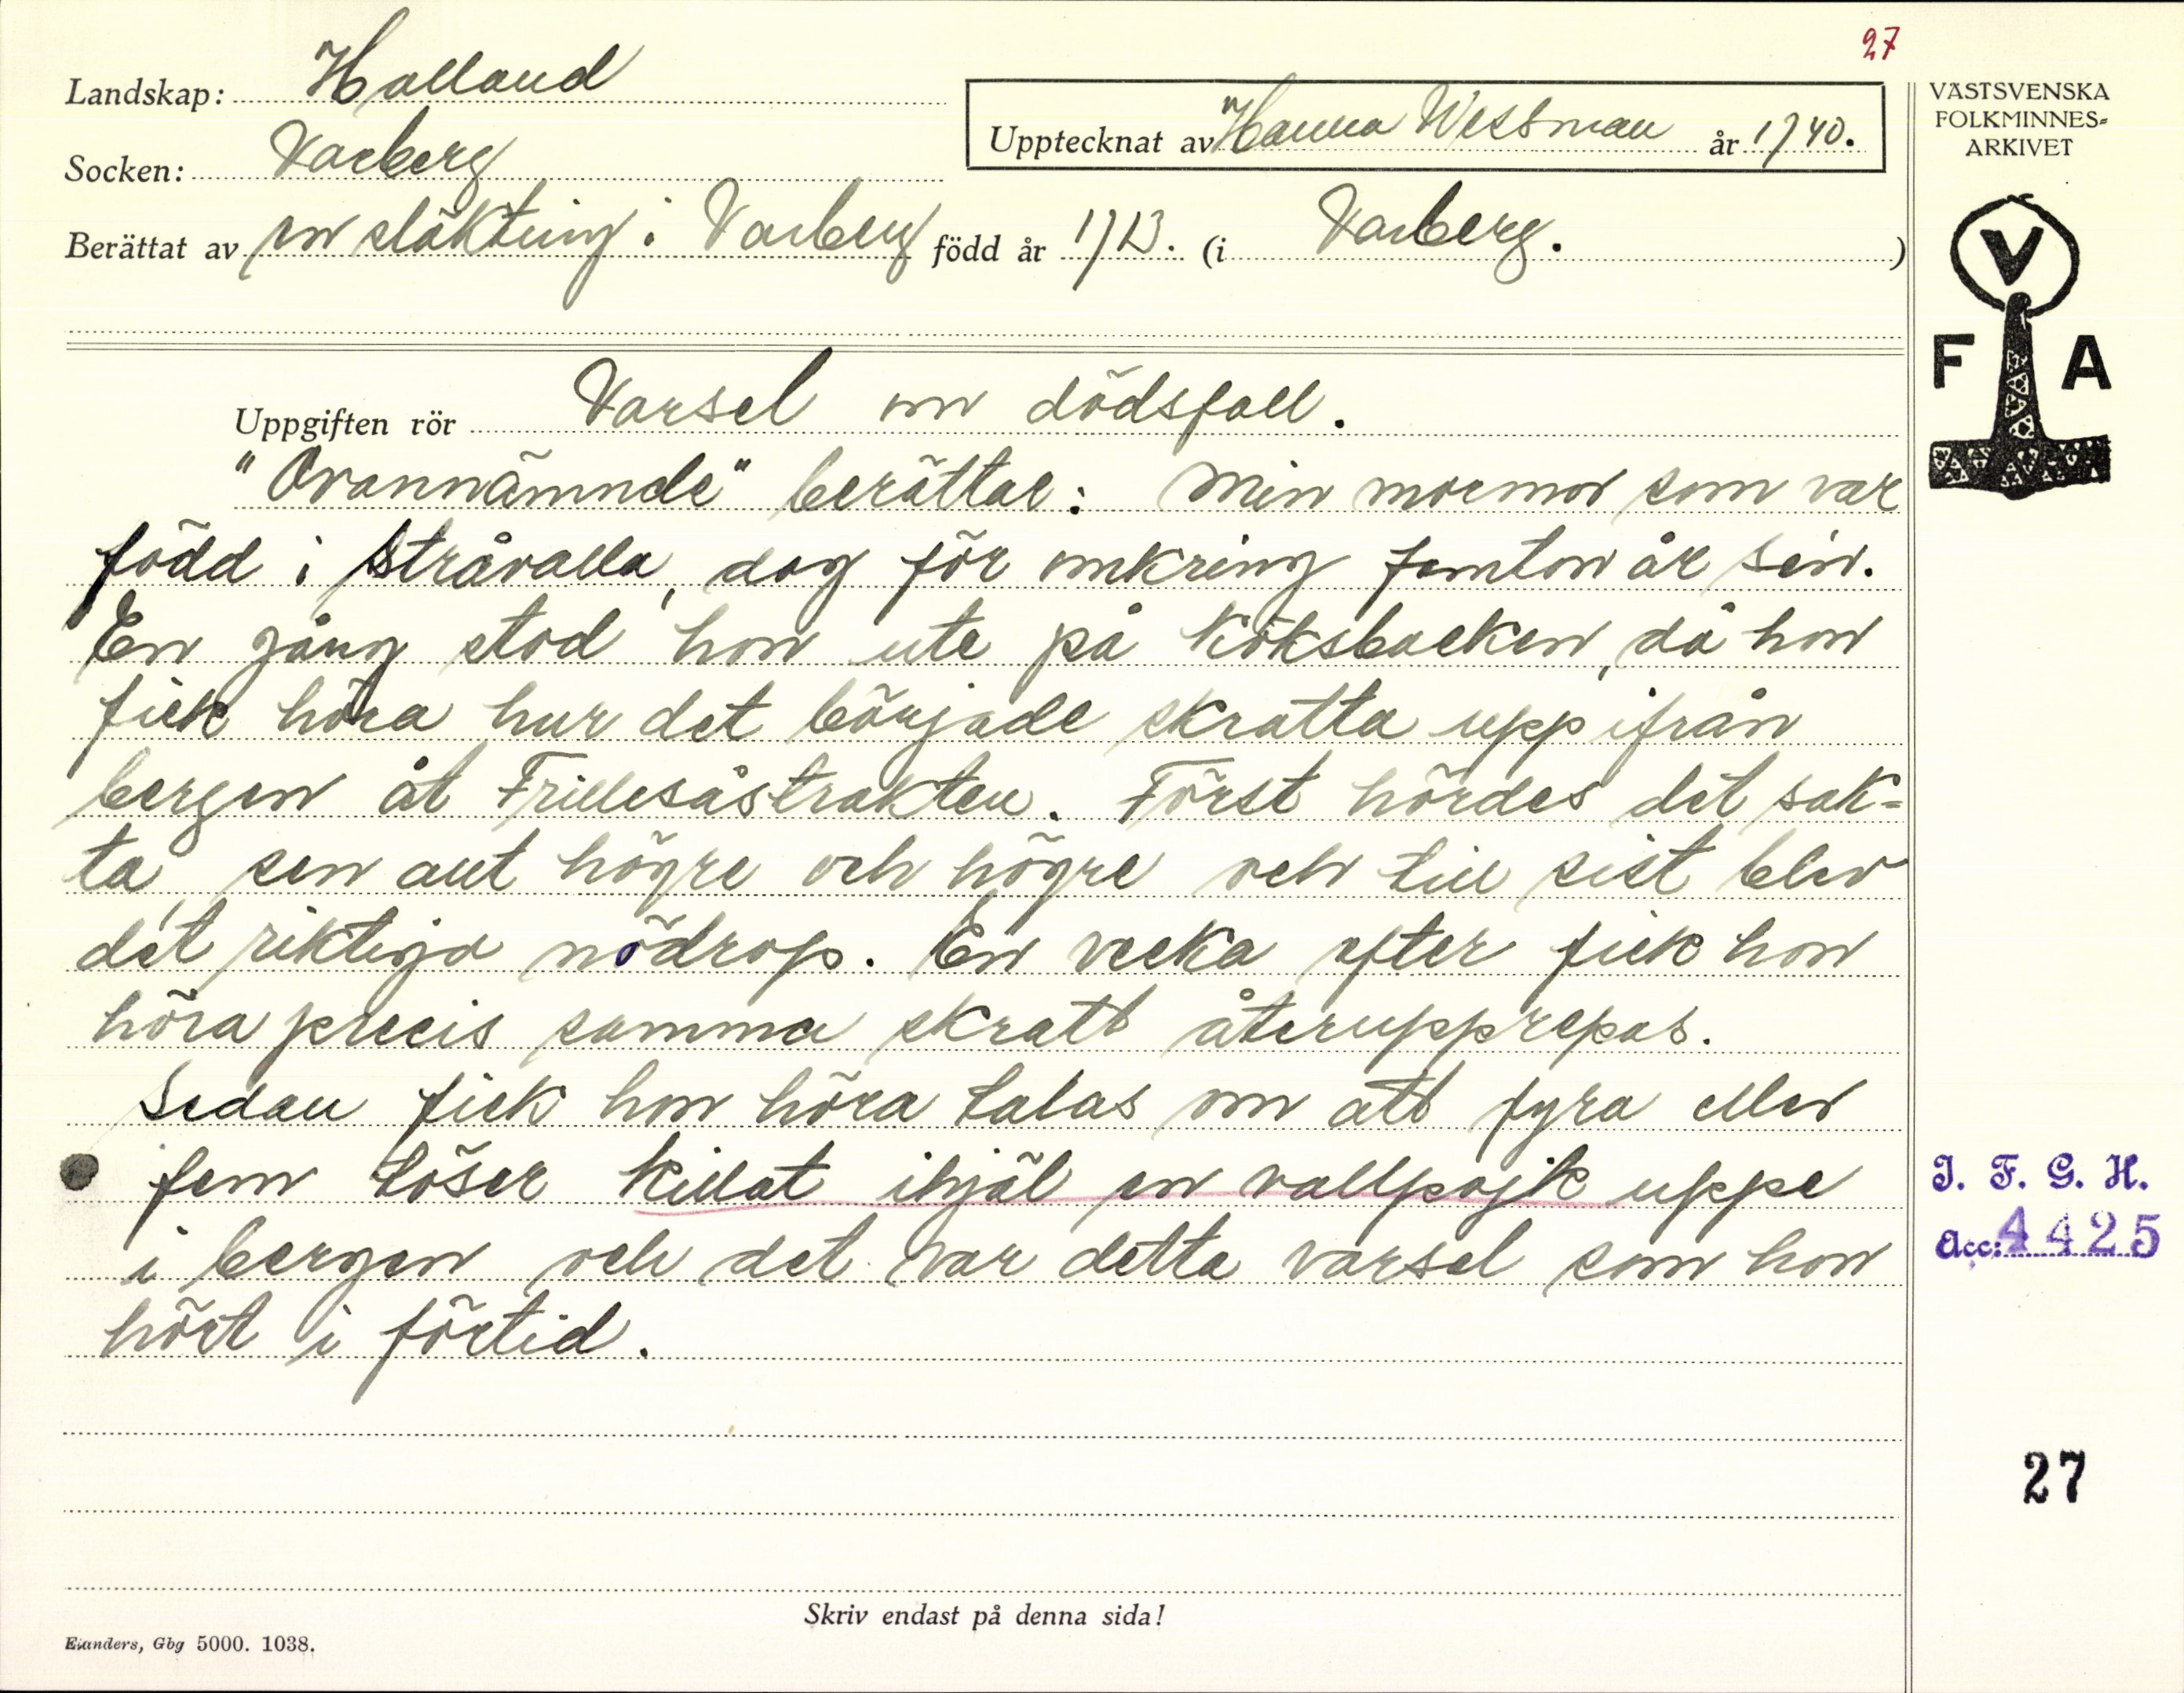 27
Landskap: Halland
Socken: Varberg
Upptecknat av Hanna Wessman år 1940.
Berättat av en släkting i Varberg född år 1913. (i Varberg.)
Uppgiften rör Varsel om dödsfall.
"Ovannämnde" berättar: Min mormor som var
född i Stråvalla, dog för omkring femton år sen.
En gång stod hon ute på köksbacken, då hon
fick höra hur det började skratta upp ifrån
bergen åt Frillesåstrakten. Först hördes det sak=
ta, sen allt högre och högre och till sist blev
det riktiga nödrop. En vecka efter fick hon
höra precis samma skratt återupprepas.
Sedan fick hon höra talas om att fyra eller
fem töser killat ihjäl en vallpojk uppe
i bergen och det var detta varsel som hon
hört i förtid.
Skriv endast på denna sida!
Elanders, Gbg 5000. 1038.
VÄSTSVENSKA
FOLKMINNES=
ARKIVET
V
F A
I. F. G. H.
Acc: 4425
27